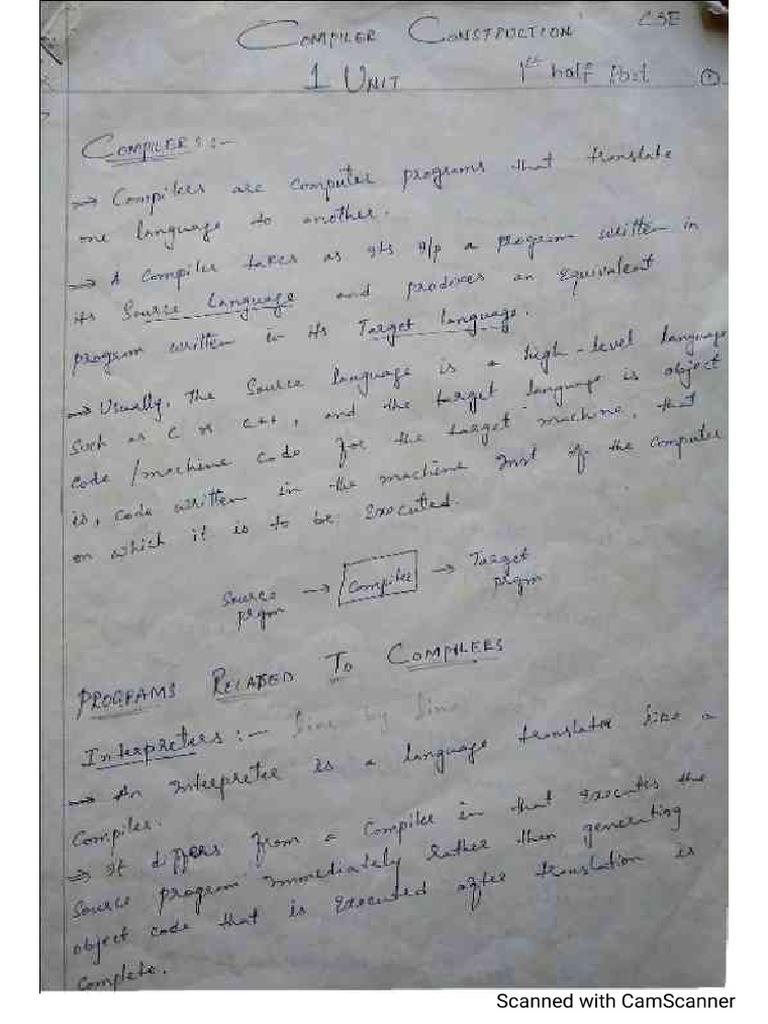 COMPILER CONSTRUCTION CSE
1 UNIT 1st half Part 1
COMPILERS :-
→ Compilers are computer programs that translate
one language to another.
→ A compiler takes as its i/p a program written in
its Source Language and produces an equivalent
program written in its Target language.
→ Usually, the source language is a high-level language
such as C or C++, and the target language is object
code /machine code for the target machine, that
is, code written in the machine Inst of the computer
on which it is to be executed.
Source → Compiler → Target
prgm prgm
PROGRAMS RELATED TO COMPILERS
Interpreters :- line by line
→ An Interpreter is a language translator like a
Compiler.
→ It differs from a compiler in that executes the
source program immediately rather than generating
object code that is executed after translation is
complete.
Scanned with CamScanner